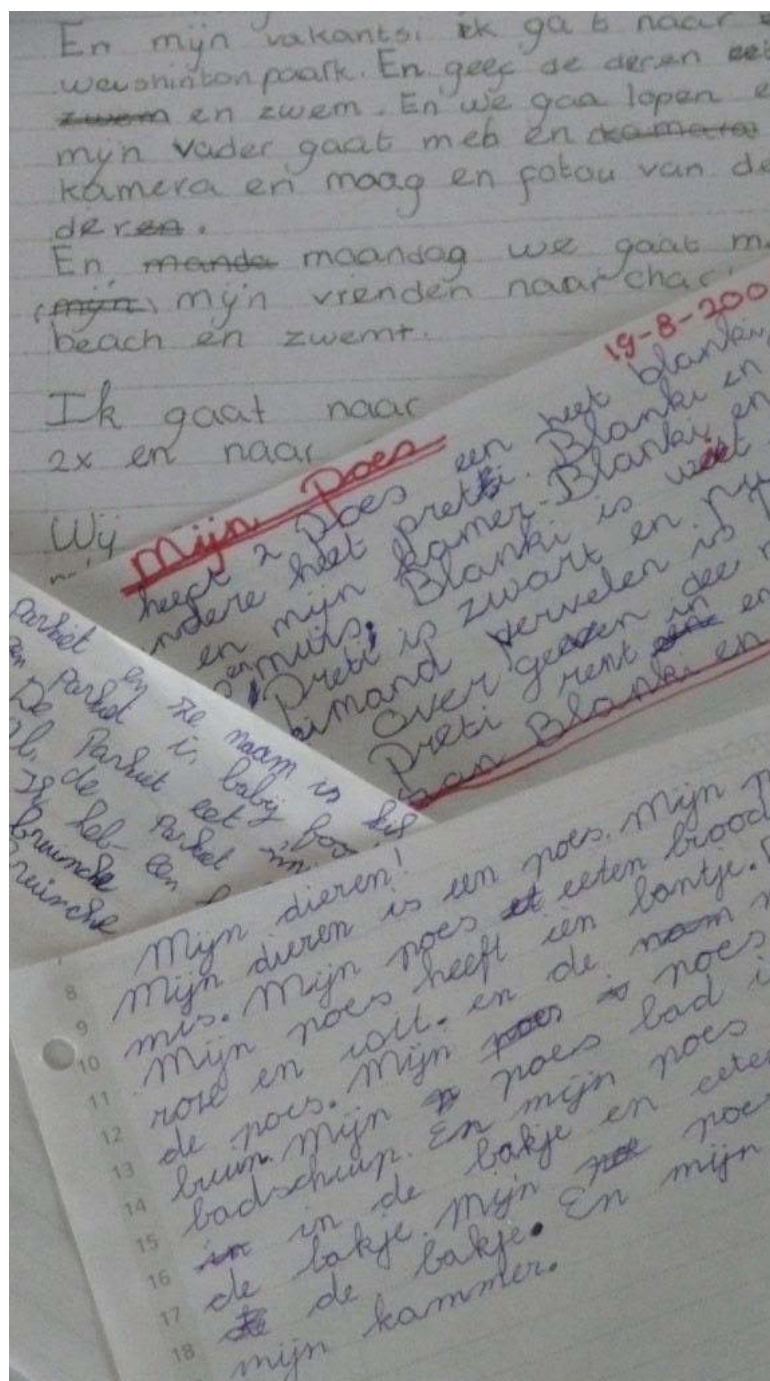 En mijn vakantsi ik gat naar
washinton paark. En geef de deren eet
zwem en zwem. En we gaa lopen e
mijn vader gaat meb en kamera
kamera en maag en fotou van de
deren.
En manda maandag we gaat m
(mijn) mijn vrenden naar char
beach en zwemt.
Ik gaat naar
2x en naar
Wij
19-8-200
Mijn Poes
heeft 2 Poes een heet blanki,
ndere heet pretti. Blanki en
en mijn kamer. Blanki en
muis. Blanki is wit
Preti is zwart en
iemand vervelen is
over geeven in
Preti rent en
van Blanki en
Parkiet en de naam is
en Parkiet is baby
De Parkiet eet
de Parkiet in
Ik heb een
bruinche
ruinche
Mijn dieren!
8 Mijn dieren is een poes. Mijn
9 mis. Mijn poes et eeten brood
10 Mijn poes heeft een bantje.
11 rose en roll. en de naam
12 de poes. Mijn poes poes
13 bruin. Mijn poes bad i
14 badschuip. En mijn poes
15 in in de bakje en eete
16 de bakje. Mijn poe poes
17 de bakje. En mijn
18 mijn kammer.